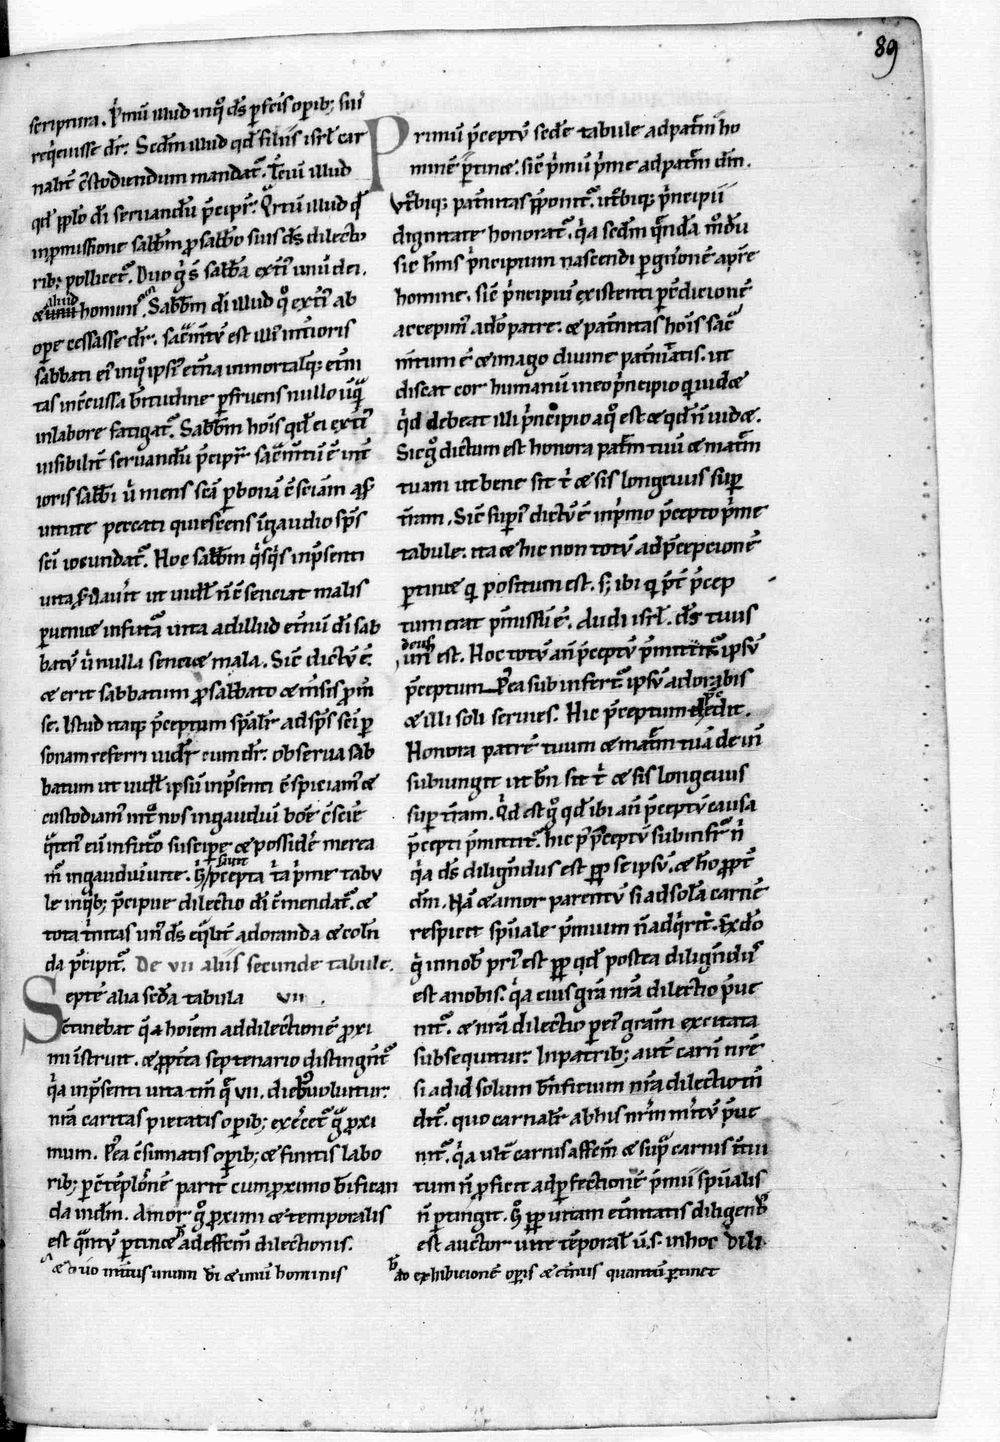 89
scriptura. P̾mū illud inq̊ ds̄ p̱fc̄is op̱ib; suis
req̾euisse dr̄. Scdm̄ illud qd̄ filiis isrl̄ car
nalit̄ c̄stodiendum mandat᷑. T̄ciū illud
qd̄ pp̄lo dī seruandū p̄cipit᷑. Q̾rtū illud qd̄
in p̱missione sabb̄m p̱ sabb̄o suis ds̄ dilecto
rib; pollicet᷑. Duo g̾ s̄ sabb̄a ext̾i unū dei.
& aliud hominis. Sabb̄m dī illud q̊ ext̾i ab
ope cessasse dr̄. sac̄m̄tū est illi᷒ int̾ioris
sabbati ei᷒ inq̊ ipse et̾na inmortalq; et̾ni
tas inc̄cussa b̄titudine p̱fruens nullo ūq̄
in labore fatigat᷑. Sabb̄m hoīs qd̄ ei ext̾i
uisibilit̄ seruandū p̄cipit᷑ sac̄m̄tū ē int̾
ioris sabb̄i ū mens sc̄a p̱ bonā c̄sciam̄ a
uitute peccati quiescens ī gaudio sp̄s
sc̄i iocundat᷑. Hoc sabb̄m q̾sq̾s in p̄senti
uita s̄uauit ut uidel̄ n̄ c̄senciat malis
p̱ueniet in futā uita ad illud et̾nū dī sab
batū ū nulla senciet mala. Sic̄ dictū ē.
& erit sabbatum p̱ sabbato & m̄sis p̱ m̄
se. Istud itaq; p̄ceptum sp̄alit̄ ad sp̄s sc̄i p̱
sonam referri uidet᷑ cum dr̄. obserua sab
batum ut uidel̄ ipsū in p̄senti c̄spiciam᷒ &
custodiam᷒ int̾ nos in gaudiū bone c̄sciē
q̾tin᷒ eū in futo suscipe & possidē merea
m᷒ in gaudiū uite. H̾ p̄cepta sunt t̾a p̾me tabu
le inq̾b; p̄cipue dilectio dī c̄mendat᷑. &
tota t̾nitas un᷒ ds̄ eq̾lit̄ adoranda & coln̄
da p̄cipit᷑. De vii aliis secunde tabule.
Septē alia scd̄a tabula vii.
c̄tinebat q̄ hoīem ad dilectionē p̱xi
mi īstruit. & p̱pt̄ea septenario distingūt᷑
q̾a in p̄senti uita tm̄ q̄ vii. dieb᷒ uoluitur.
nr̄a caritas pietatis op̱ib; ex̾cet᷑ q̄ p̱xi
mum. Pea c̄sumatis op̱ib; & finitis labo
rib; p̱ c̄tēplōnē parit̄ cum p̱ximo b̄ifican
da in dm̄. Amor g̊ p̱ximi & temporalis
est q̾ntū p̱tinet b ad effectm̄ dilectionis.
a & duo unū unum di & unū hominis
Primū p̄ceptū scd̄e tabule ad patm̄ ho
minē p̱tinet. sic̄ p̾mū p̾me ad patm̄ dm̄.
Vt̾biq; pat̾nitas p̱ponit᷑. ut̾biq; p̾ncipii
dignitate honorat᷑. q̾a scdm̄ q̄ndā modū
sic h̄ms p̾ncipium nascendi p̱ gn̄onē a pat̾e
homine. sic̄ p̾ncipiū existendi p̱ c̄dicionē
accepim᷒ a dō patre. & pat̾nitas hoīs sac̾
m̄tum ē & imago diuine pat̾nitatis. ut
discat cor humanū in eo p̾ncipio qd̄ uidet
q̾d debeat illi p̾ncipio a q̊ est & qd̄ n̄ uidet.
Sic g̊ dictum est honora patm̄ tuū & matm̄
tuam ut bene sit t̾ & sis longeuus sup̱
t̄ram. Sic̄ sup̱i᷒ dictū ē in p̾mo p̄cepto p̾me
tabule. ita & hic non totū ad p̄cepcionē
p̱tinet q̄ positum est. s; ibi q̄ p̄t p̄cep
tum erat p̄missū ē. Audi isrl̄. ds̄ tuus
deus un᷒ est. Hoc totū an̄ p̄ceptū p̄mittit᷑ ipsū
p̄ceptum Pea subinfert᷑ ipsū adorabis
& illi soli seruies. Hic p̄ceptum p̄cedit.
Honora patrē tuum & matm̄ tuā dein̄
subiungit ut bn̄ sit t̾ & sis longeuus
sup̱ t̄ram. Q̾d est g̊ qd̄ ibi an̄ p̄ceptū causa
p̄cepti p̄mittit᷑. hic p᷒ p̄ceptū subinfert᷑ n̄
q̾a ds̄ diligēdus est pp̄ se ipsū. & hō pp̄t̄
dm̄. Nā & amor parentū si ad solā carnē
respicit sp̄uale p̄mium n̄ adq̾rit. Ex dō
g̊ in nob̄ pri᷒ est pp̄ qd̄ postea diligēdus
est a nobis. q̾a eius gr̄a nr̄ā dilectio p̄ue
nit᷑. & nr̄a dilectio p̱ ei᷒ gr̄am excitata
subsequitur. In patrib; aut̄ carn̄ nr̄ē
si ad id solum b̄nficium nr̄a dilectio tn̄
dit᷑. quo carnalit̄ ab his nr̄m m̄itū p̄ue
nit᷑. q̾a ult̄ carnis affectm̄ & sup̱ carnis t̄mi
tum n̄ p̱ficit ad p̱fectionē p̾mii sp̄ualis
n̄ p̱tingit. q̊ pp̄ uitam et̾nitatis diligend᷒
est auctor uite tēporal̄ ū. s. in hoc dili
b ad exhibicionē op̱is & cuius quantū p̱tinet